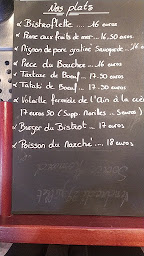 Nos plats
∝ Bistroflette .... 16 euros
∝ Pavé aux fruits de mer .. 16.50 euros
∝ Mignon de porc gratiné Savoyarde .. 16
∝ Pièce du Boucher - 16 euros
∝ Tartare de Boeuf ... 17.50 euros
∝ Tataki de Boeuf ... 17.50 euros
∝ Volaille fermière de l'Ain à la crème
17 euros 50 (Supp. Morilles ... 5 euros)
∝ Burger du Bistrot .. 17 euros
∝ Poisson du Marché ... 18 euros